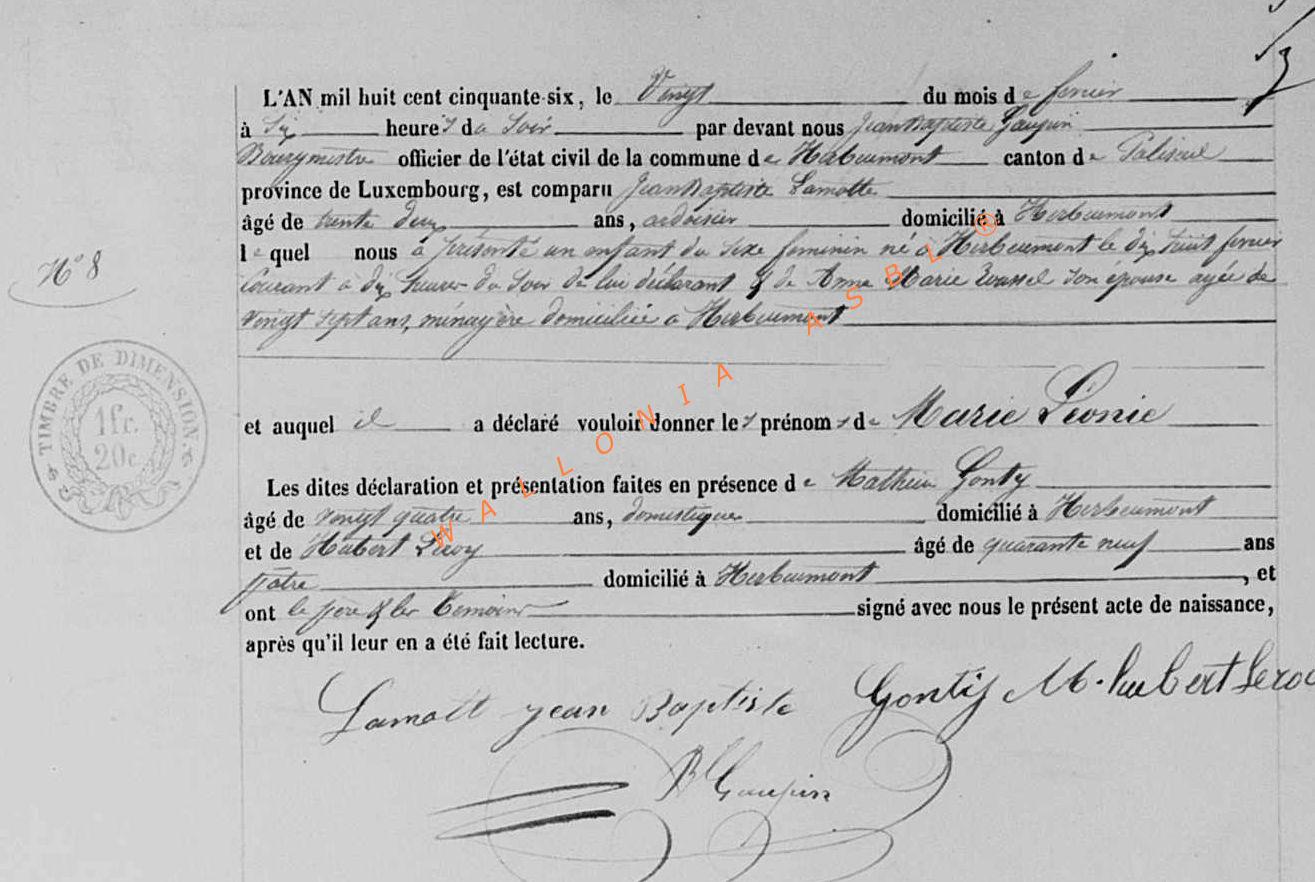 L'AN mil huit cent cinquante-six, le Vingt du mois de fevrier
à Six heures du Soir par devant nous Jean Baptiste Gaupin
Bourgmestre officier de l'état civil de la commune de Herbeumont canton de Paliseul
province de Luxembourg, est comparu Jean Baptiste Lamotte
âgé de trente deux ans, ardoisier domicilié à Herbeumont
N° 8
lequel nous a présenté un enfant du Sexe feminin né à Herbeumont le dix huit fevrier
Courant à dix heures du Soir de lui déclarant & de Anne Marie Roussel Son épouse agée de
Vingt Sept ans, ménagère domiciliée à Herbeumont
et auquel il a déclaré vouloir donner les prénoms de Marie Léonie
TIMBRE DE DIMENSION.
1fr.
20c
Les dites déclaration et présentation faites en présence de Mathieu Gonty
âgé de vingt quatre ans, domestique domicilié à Herbeumont
et de Hubert Leroy âgé de quarante neuf ans
pâtre domicilié à Herbeumont, et
ont le père & les témoins signé avec nous le présent acte de naissance,
après qu'il leur en a été fait lecture.
Lamott jean Baptiste Gontij M. hubert Leroi
Gaupin
WALLONIA ASBL ®